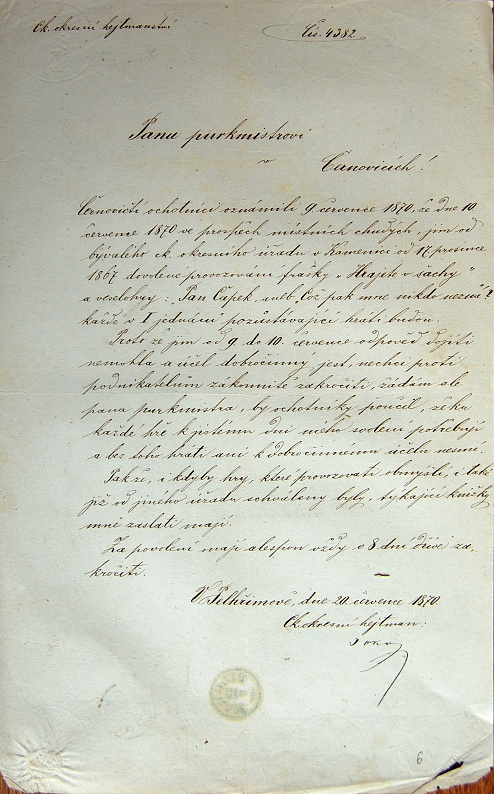 Ck. okresní hejtmanství
Čís. 4382
Panu purkmistrovi
v
Černovicích!
Černovičtí ochotníci oznámili 9 července 1870, že dne 10.
července 1870 ve prospěch místních chudých, jim od
bývalého ck. okresního úřadu v Kamenici od 17. prosince
1867 dovolené provozování frašky „Hrajete v šachy"
a veselohry: Pan Čapek, aneb „Což pak mne nikdo nezná"?
každé v I jednání pozůstávající hráti budou.
Proto že jim od 9 do 10. července odpověď dojíti
nemohla a účel dobročinný jest, nechci proti
podnikatelům zákonitě zakročiti, žádám ale
pana purkmistra, by ochotníky poučil, že ku
každé hře k jistému dni mého svolení potřebují
a bez toho hráti ani k dobročinnému účelu nesmí.
Takže, i kdyby hry, které provozovati obmýšlí, i tak
již od jiného úřadu schváleny byly, týkající knížky
mně zaslati mají.
Za povolení mají alespoň vždy o 8 dní dříve za-
kročiti.
V Pelhřimově, dne 20. července 1870.
Ck. okresní hejtman:
6